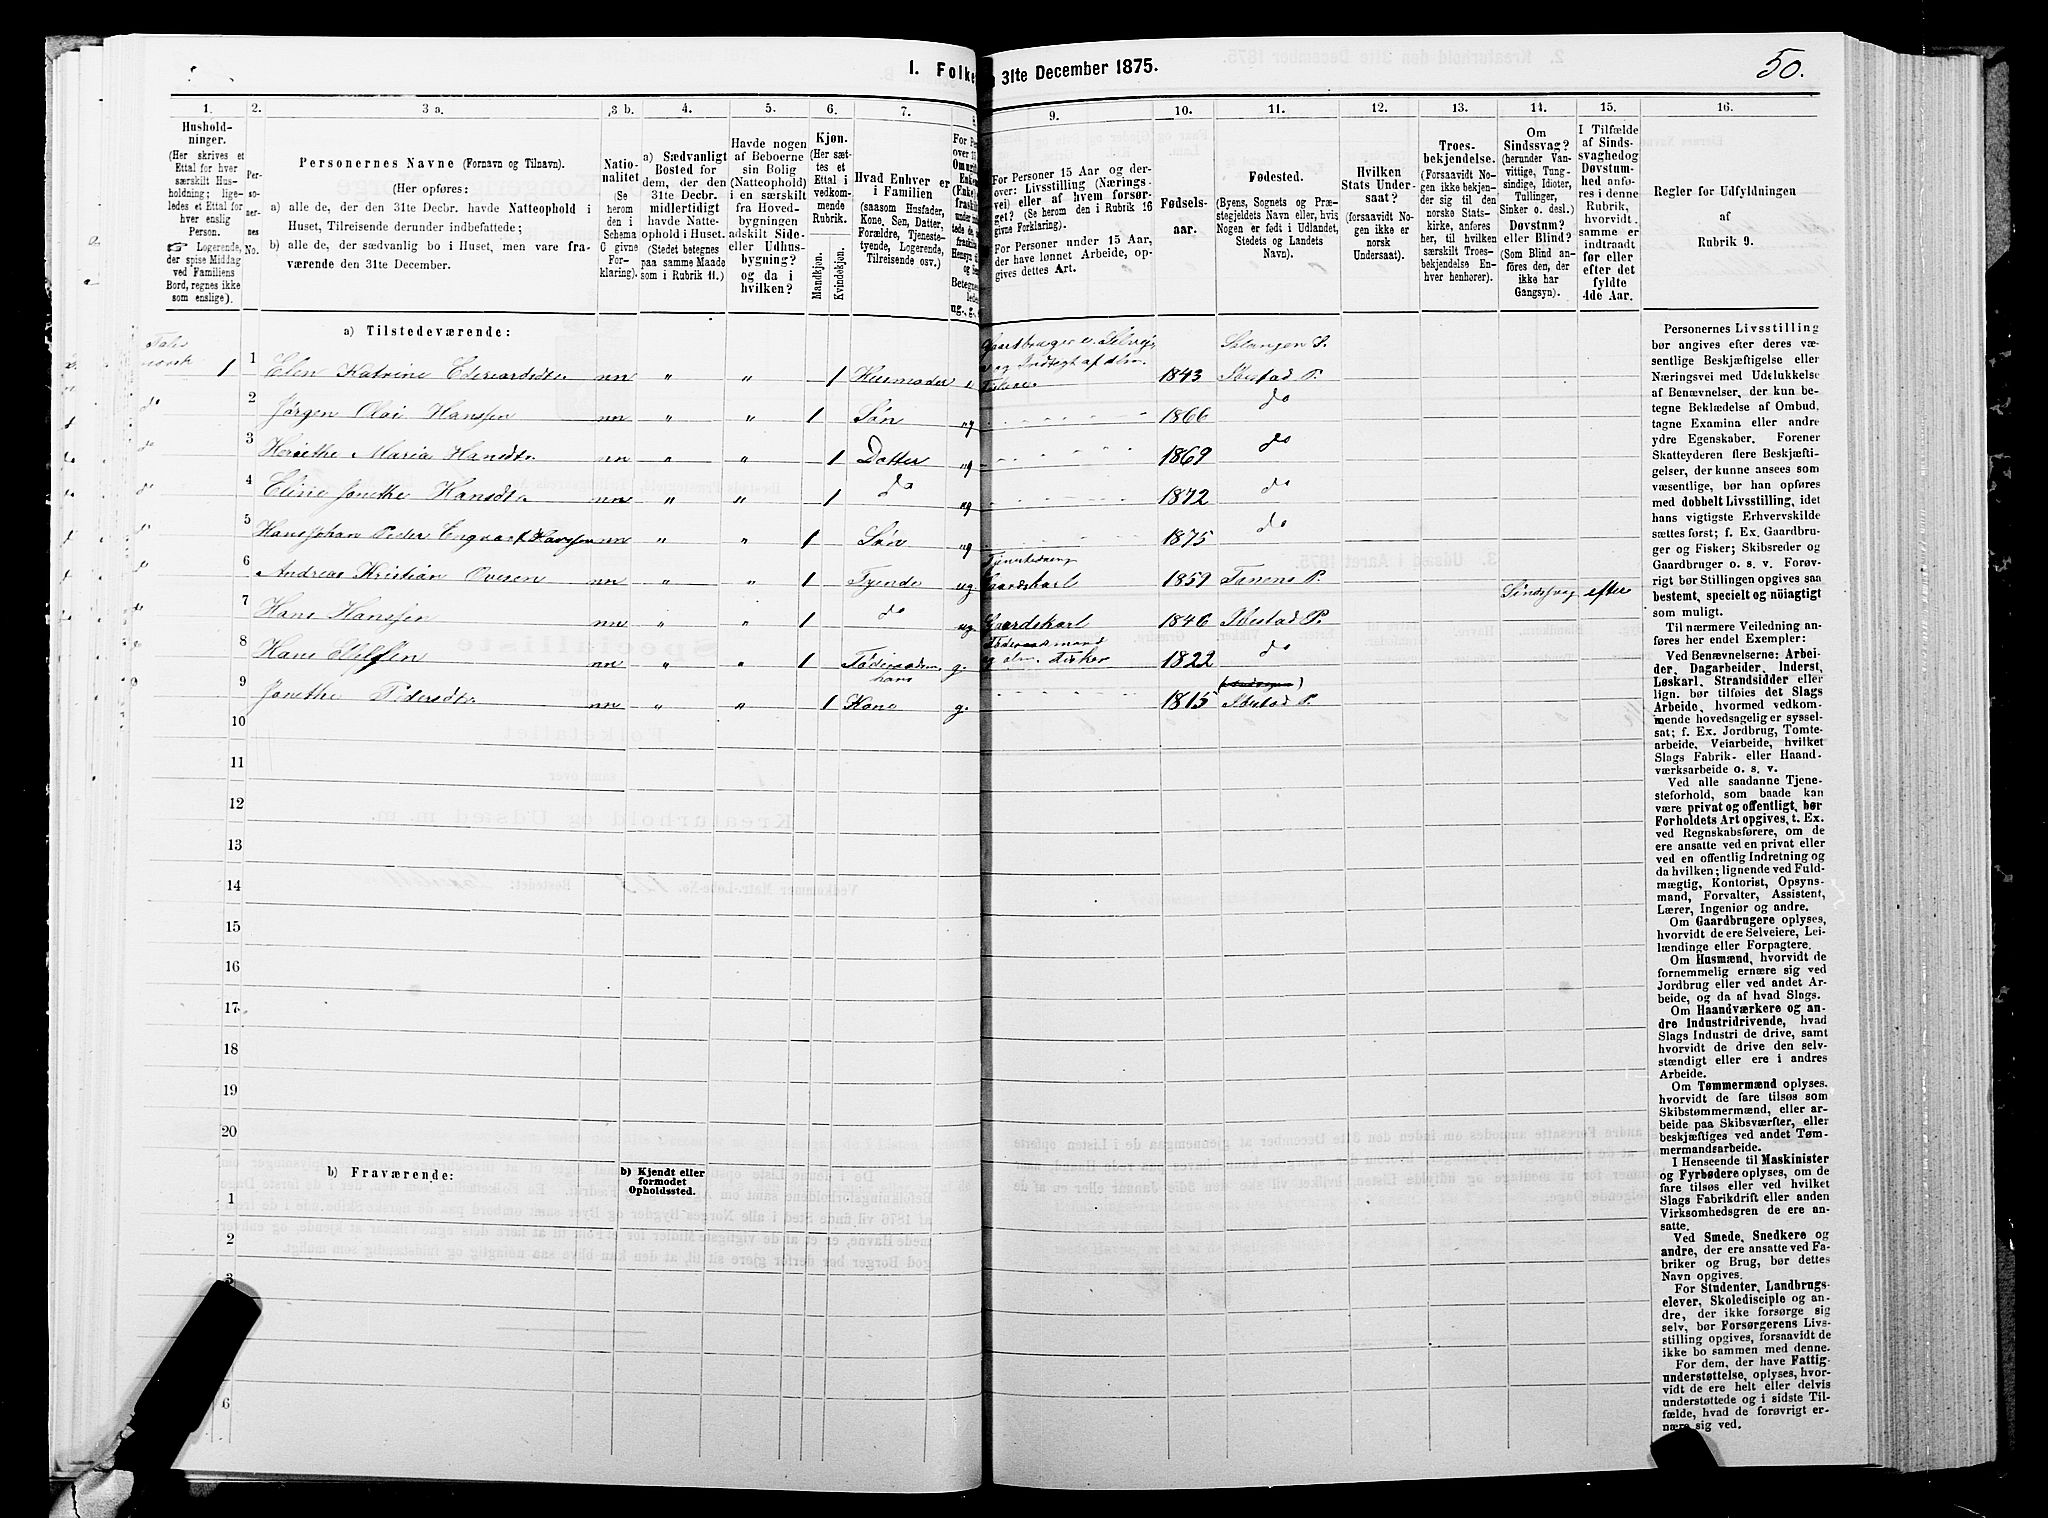 I. Folke
31te December 1875.
50.
1.
2.
3 a.
3 b.
4.
5.
6.
7.
8.
9.
10.
11.
12.
13.
14.
15.
16.
Husholdninger.
(Her skrives et
Ettal for hver
særskilt Husholdning; ligeledes
et Ettal for
hver enslig
Person.
☞ Logerende,
der spise Middag
ved Familiens
Bord, regnes ikke
som enslige).
Personernes
No.
Personernes Navne (Fornavn og Tilnavn).
(Her opføres:
a) alle de, der den 31te Decbr. havde Natteophold i
Huset, Tilreisende derunder indbefattede;
b) alle de, der sædvanlig bo i Huset, men vare fraværende
den 31te December.
Nationalitet
(Se
herom
den i
Schema
G givne
Forklaring).
a) Sædvanligt
Bosted for
dem, der den
31te Decbr.
midlertidigt
havde Natteophold
i Huset.
(Stedet betegnes
paa samme Maade
som i Rubrik 11.)
Havde nogen
af Beboerne
sin Bolig
(Natteophold)
i en særskilt
fra Hovedbygningen
adskilt Side-
eller Udhusbygning?
og da i
hvilken?
Kjøn.
(Her sættes
et
Ettal i
vedkommende
Rubrik.
Mandkjøn.
Kvindekjøn.
Hvad Enhver er
i Familien
(saasom Husfader,
Kone, Søn, Datter,
Forældre, Tjenestetyende,
Logerende,
Tilreisende osv.)
For Personer 15 Aar og derover:
Livsstilling (Næringsvei)
eller af hvem forsørget?
(Se herom den i Rubrik 16
givne Forklaring.)
For Personer under 15 Aar,
der have lønnet Arbeide, opgives
dettes Art.
Fødselsaar.
Fødested.
(Byens, Sognets og Præstegjeldets
Navn eller, hvis
Nogen er født i Udlandet,
Stedets og Landets
Navn).
Hvilken
Stats Undersaat?
(forsaavidt Nogen
ikke er
norsk
Undersaat).
Troesbekjendelse.
(Forsaavidt Nogen
ikke bekjender
sig til den
norske Statskirke,
anføres
her, til hvilken
særskilt Troesbekjendelse
Enhver
henhører).
Om
Sindssvag?
(herunder Vanvittige,
Tungsindige,
Idioter,
Tullinger,
Sinker o. desl.)
Døvstum?
eller Blind?
(Som Blind anføres
den, der
ikke har
Gangsyn).
I Tilfælde
af Sindssvaghed
og
Døvstumhed
anføres
i denne
Rubrik,
hvorvidt
samme er
indtraadt
før eller
efter det
fyldte
4de Aar.
Regler for Udfyldningen
af
Rubrik 9.
a) Tilstedeværende:
1 1 Elen Katrine Edevardsdtr nn „ „ 1 Husmoder Gaardbruger 1843 Salangen S. Ibestad P.
do 2 Jørgen Olai Hanssen nn „ „ 1 Søn ug 1866 do
do 3 Maria Hansdtr nn „ „ 1 Datter ug 1869 do
do 4 Eline Jonethe Hansdtr nn „ „ 1 do ug 1872 do
do 5 Hans Johan Peder Hanssen nn „ „ 1 Søn ug 1875 do
6 Andreas Kristian Ovesen nn „ „ 1 Tyende ug Gaardskarl 1859 Tranens P.
do 7 Hans Hanssen nn „ „ 1 do ug Gaardskarl 1846 Ibestad P. Sindssvag efter
do 8 Hans nn „ „ 1 g. Føderaadsmand og Fisker 1822 do
do 9 Jonethe Pedersdtr nn „ „ 1 Kone g. 1815 Ibestad P.
10
11
12
13
14
15
16
17
18
19
20
b) Fraværende:
b) Kjendt eller
formodet
Opholdssted.
1
2
3
6
Personernes Livsstilling
bør angives efter deres væsentlige
Beskjæftigelse eller
Næringsvei med Udelukkelse
af Benævnelser, der kun betegne
Beklædelse af Ombud,
tagne Examina eller andre
ydre Egenskaber. Forener
Skatteyderen flere Beskjæftigelser,
der kunne ansees som
væsentlige, bør han opføres
med dobbelt Livsstilling, idet
hans vigtigste Erhvervskilde
sættes først; f. Ex. Gaardbruger
og Fisker; Skibsreder og
Gaardbruger o. s. v. Forøvrigt
bør Stillingen opgives saa
bestemt, specielt og nöiagtigt
som muligt.
Til nærmere Veiledning anføres
her endel Exempler:
Ved Benævnelserne: Arbeider,
Dagarbeider, Inderst,
Løskarl, Strandsidder eller
lign. bør tilføies det Slags
Arbeide, hvormed vedkommende
hovedsagelig er sysselsat;
f. Ex. Jordbrug, Tomtearbeide,
Veiarbeide, hvilket
Slags Fabrik- eller Haandværksarbeide
o. s. v.
Ved alle saadanne Tjenesteforhold,
som baade kan
være privat og offentligt, bør
Forholdets Art opgives, t. Ex.
ved Regnskabsførere, om de
ere ansatte ved en privat eller
ved en offentlig Indretning og
da hvilken; lignende ved Fuldmægtig,
Kontorist, Opsynsmand,
Forvalter, Assistent,
Lærer, Ingeniør og andre.
Om Gaardbrugere oplyses,
hvorvidt de ere Selveiere, Leilændinge
eller Forpagtere.
Om Husmænd, hvorvidt de
fornemmelig ernære sig ved
Jordbrug eller ved andet Arbeide,
og da af hvad Slags.
Om Haandværkere og andre
Industridrivende, hvad
Slags Industri de drive, samt
hvorvidt de drive den selvstændigt
eller ere i andres
Arbeide.
Om Tømmermænd oplyses,
hvorvidt de fare tilsøs som
Skibstømmermænd, eller arbeide
paa Skibsværfter, eller
beskjæftiges ved andet Tømmermandsarbeide.
I Henseende til Maskinister
og Fyrbødere oplyses, om de
fare tilsøs eller ved hvilket
Slags Fabrikdrift eller anden
Virksomhedsgren de ere ansatte.
Ved Smede, Snedkere og
andre, der ere ansatte ved Fabriker
og Brug, bør dettes
Navn opgives.
For Studenter, Landbrugselever,
Skoledisciple og andre,
der ikke forsørge sig
selv, bør Forsørgerens Livsstilling
opgives, forsaavidt de
ikke bo sammen med denne.
For dem, der have Fattigunderstøttelse,
oplyses, hvorvidt
de ere helt eller delvis
understøttede og i sidste Tilfælde,
hvad de forøvrigt ernære
sig ved.